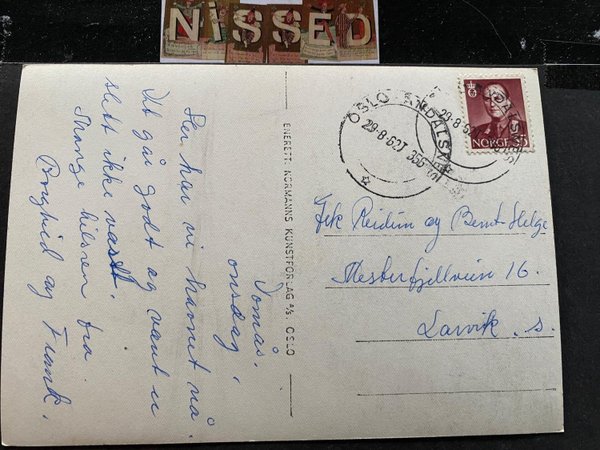 NiSSED
Domås,
onsdag,
Her har vi havnet nå.
Det går godt og været er
slett ikke værst.
Mange hilsen fra
Borghild og Frank.
ENERETT: NORMANNS KUNSTFORLAG A/S. OSLO
OSLO ANDALSN
29-8-62J 356
29-8-62
NORGE 35
Frk Reidun og Bernt-Helge
Mesterfjellveien 16.
Larvik. s.